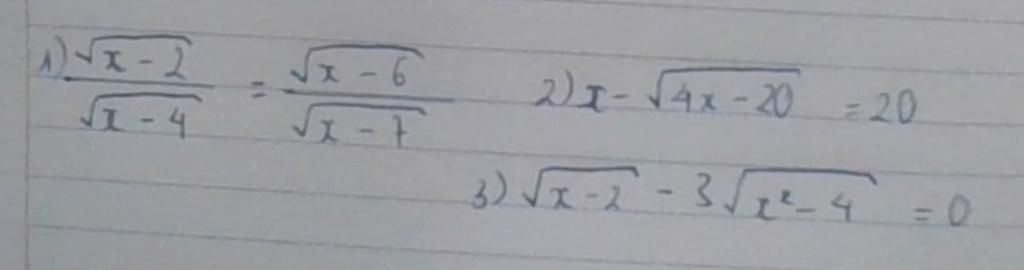 1) √(x-2) / √(x-4) = √(x-6) / √(x-7)
2) x - √(4x-20) = 20
3) √(x-2) - 3√(x²-4) = 0